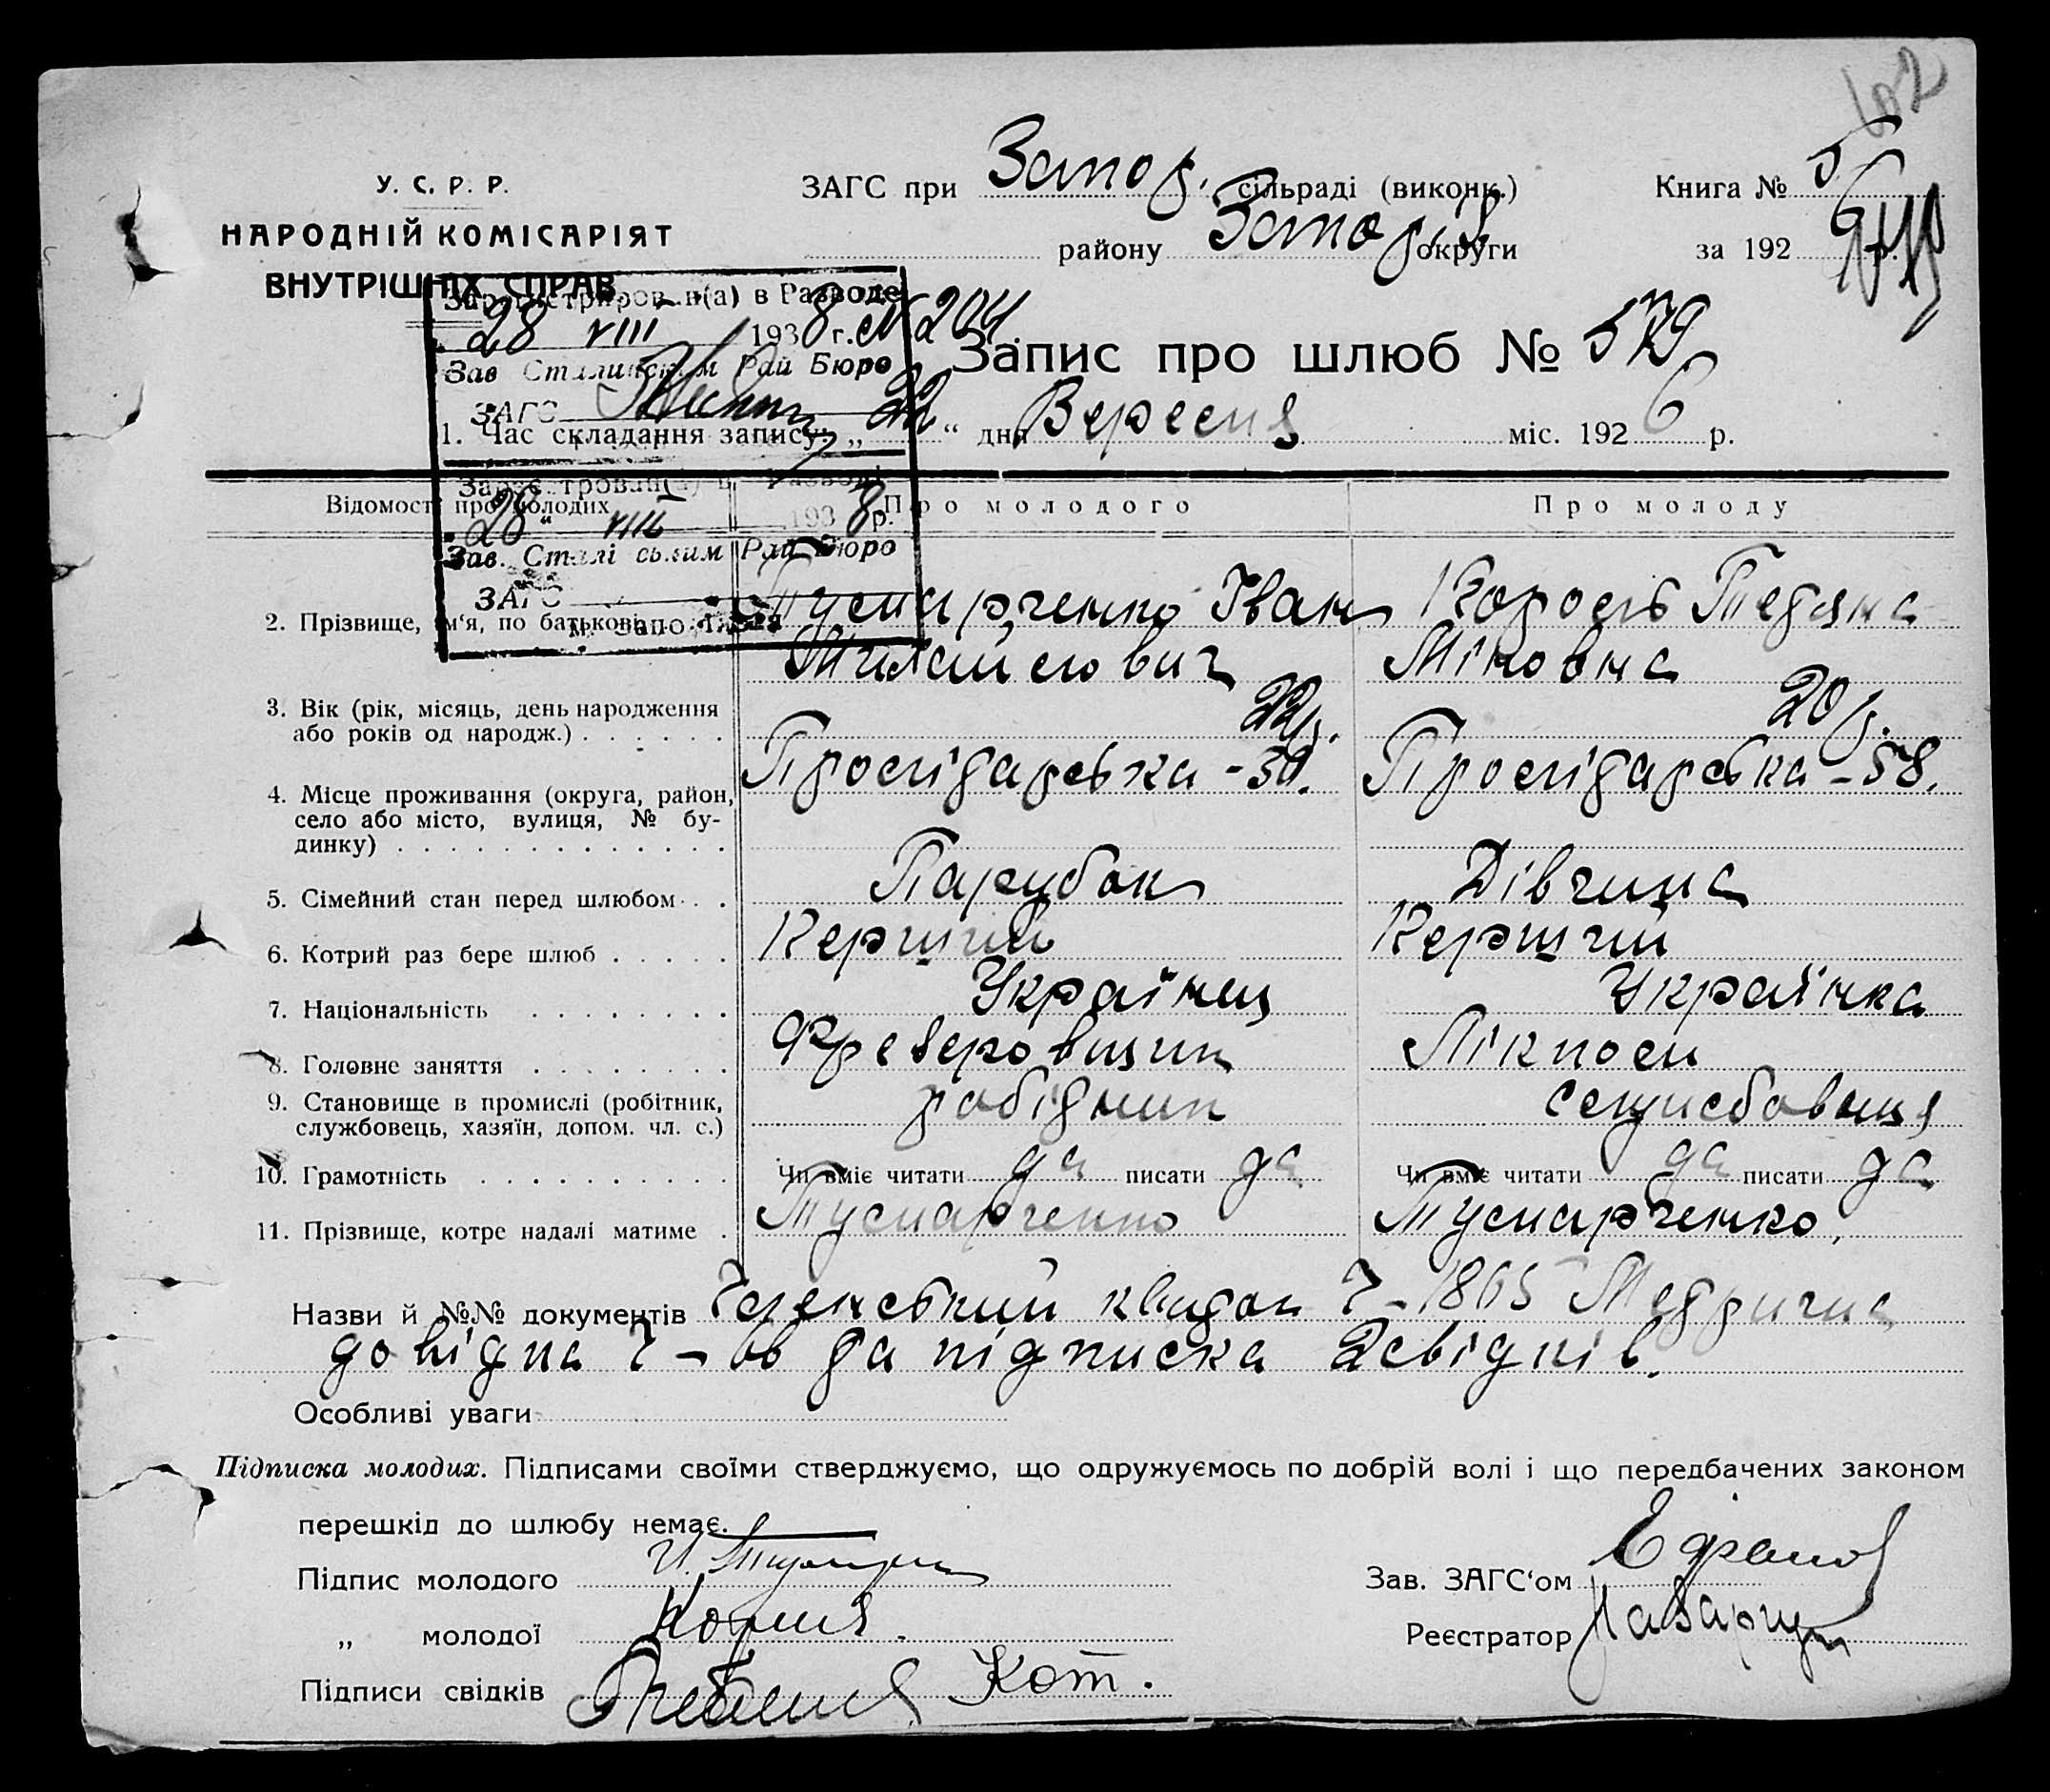 У. С. Р. Р.
НАРОДНІЙ КОМІСАРІЯТ
ВНУТРІШНІХ СПРАВ
ЗАГС при Запор. сільраді (виконк.)
району Запоріз округи
Книга № 5
за 192 6 р.
Зарегистрирован(а) в Разводе
28 VIII 1938 г. № 204
Зав Сталинским Рай Бюро
ЗАГС
Запис про шлюб № 579
1. Час складання запису: „ 22 “ дня Вересня міс. 192 6 р.
Зареєстрован(а) в Разводі
28 “ VIII 1938 р.
Зав. Сталінським Рай Бюро
ЗАГС
м. Запоріжжя
Відомості про молодих Про молодого Про молоду
2. Прізвище, ім'я, по батькові Іван
Міновна
3. Вік (рік, місяць, день народження 22 р. 20 р.
або років од народж.)
4. Місце проживання (округа, район, - 58.
село або місто, вулиця, № бу-
динку)
5. Сімейний стан перед шлюбом Парубок Дівчина
6. Котрий раз бере шлюб Перший Перший
7. Національність Українец Українка
8. Головне заняття Фрезеровщик Лікпом
9. Становище в промислі (робітник, робідник
службовець, хазяїн, допом. чл. с.)
10. Грамотність Чи вміє читати да писати да Чи вміє читати да писати да
11. Прізвище, котре надалі матиме Тусмарченко Тусмарченко.
Назви й №№ документів квидок Ч - 1865 Медрична
довідка Ч - 66 да підписка 2 свідків.
Особливі уваги
Підписка молодих. Підписами своїми стверджуємо, що одружуємось по добрій волі і що передбачених законом
перешкід до шлюбу немає.
Підпис молодого
„ молодої
Підписи свідків Кот.
Зав. ЗАГС'ом
Реєстратор